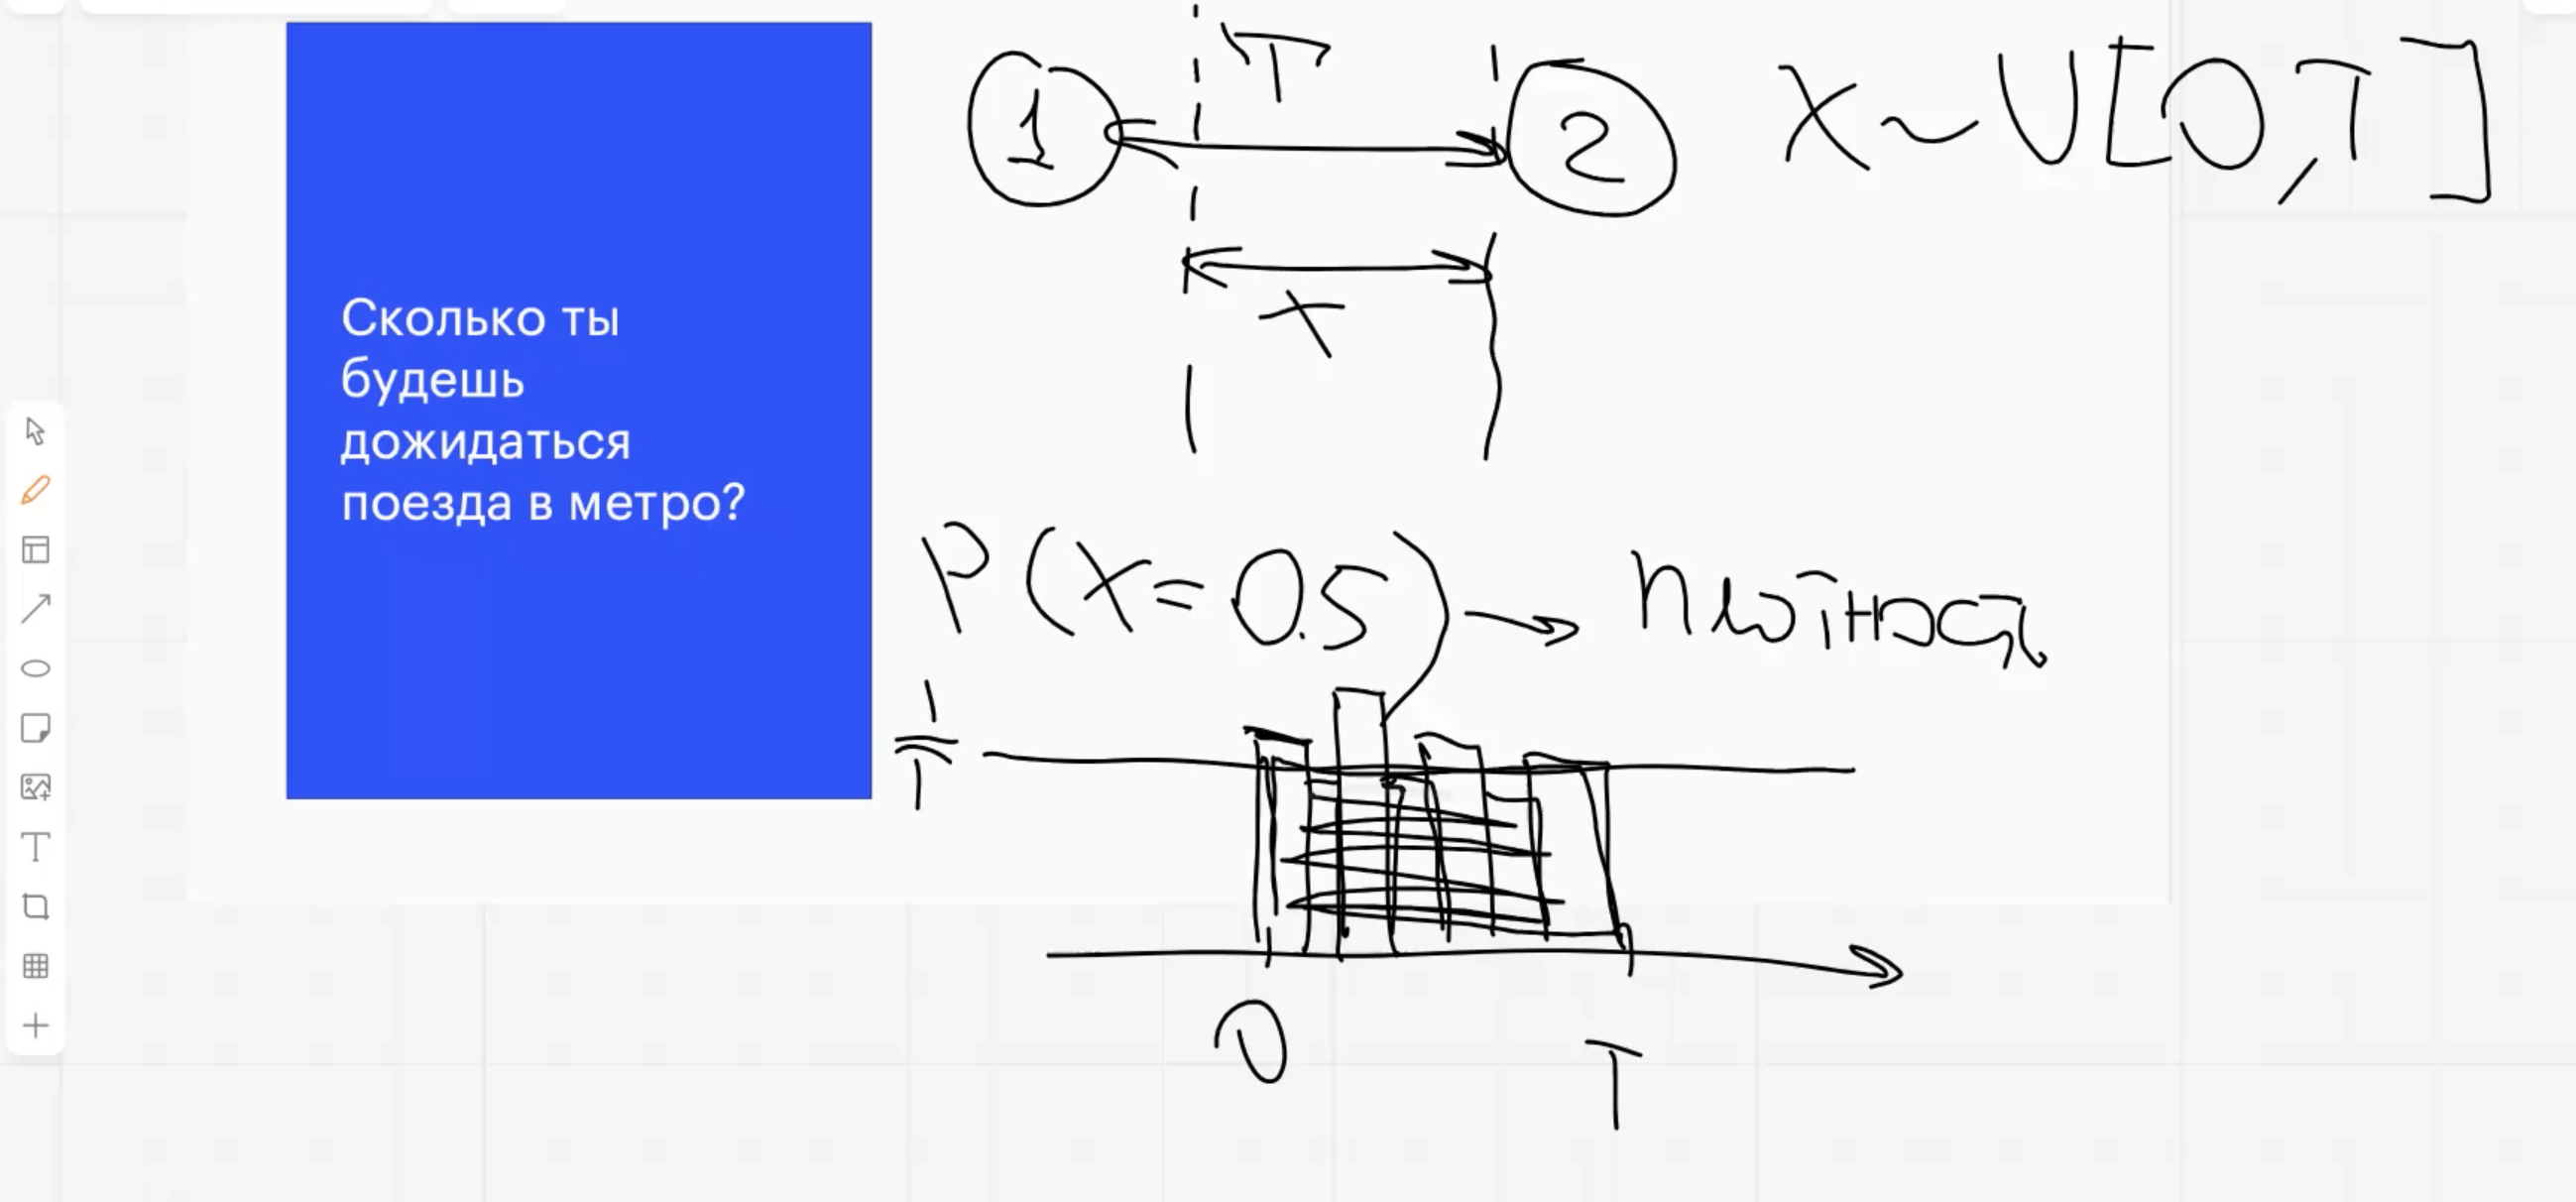 Сколько ты
будешь
дожидаться
поезда в метро?
1 T 2 X ~ U[0,T]
X
P(X=0.5) → плотность
1/T
0 T